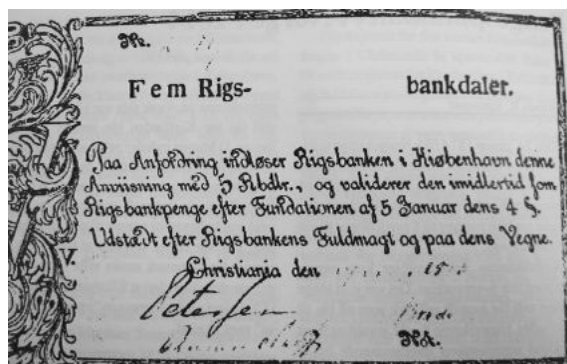 No.
Fem Rigs- bankdaler.
Paa Anfordring indløser Rigsbanken i Kiøbenhavn denne
Anviisning med 5 Rbdlr., og validerer den imidlertid som
Rigsbankpenge efter Fundationen af 5 Januar dens 4 §.
Udstædt efter Rigsbankens Fuldmagt og paa dens Vegne.
V.
Christiania den
Petersen
Not.